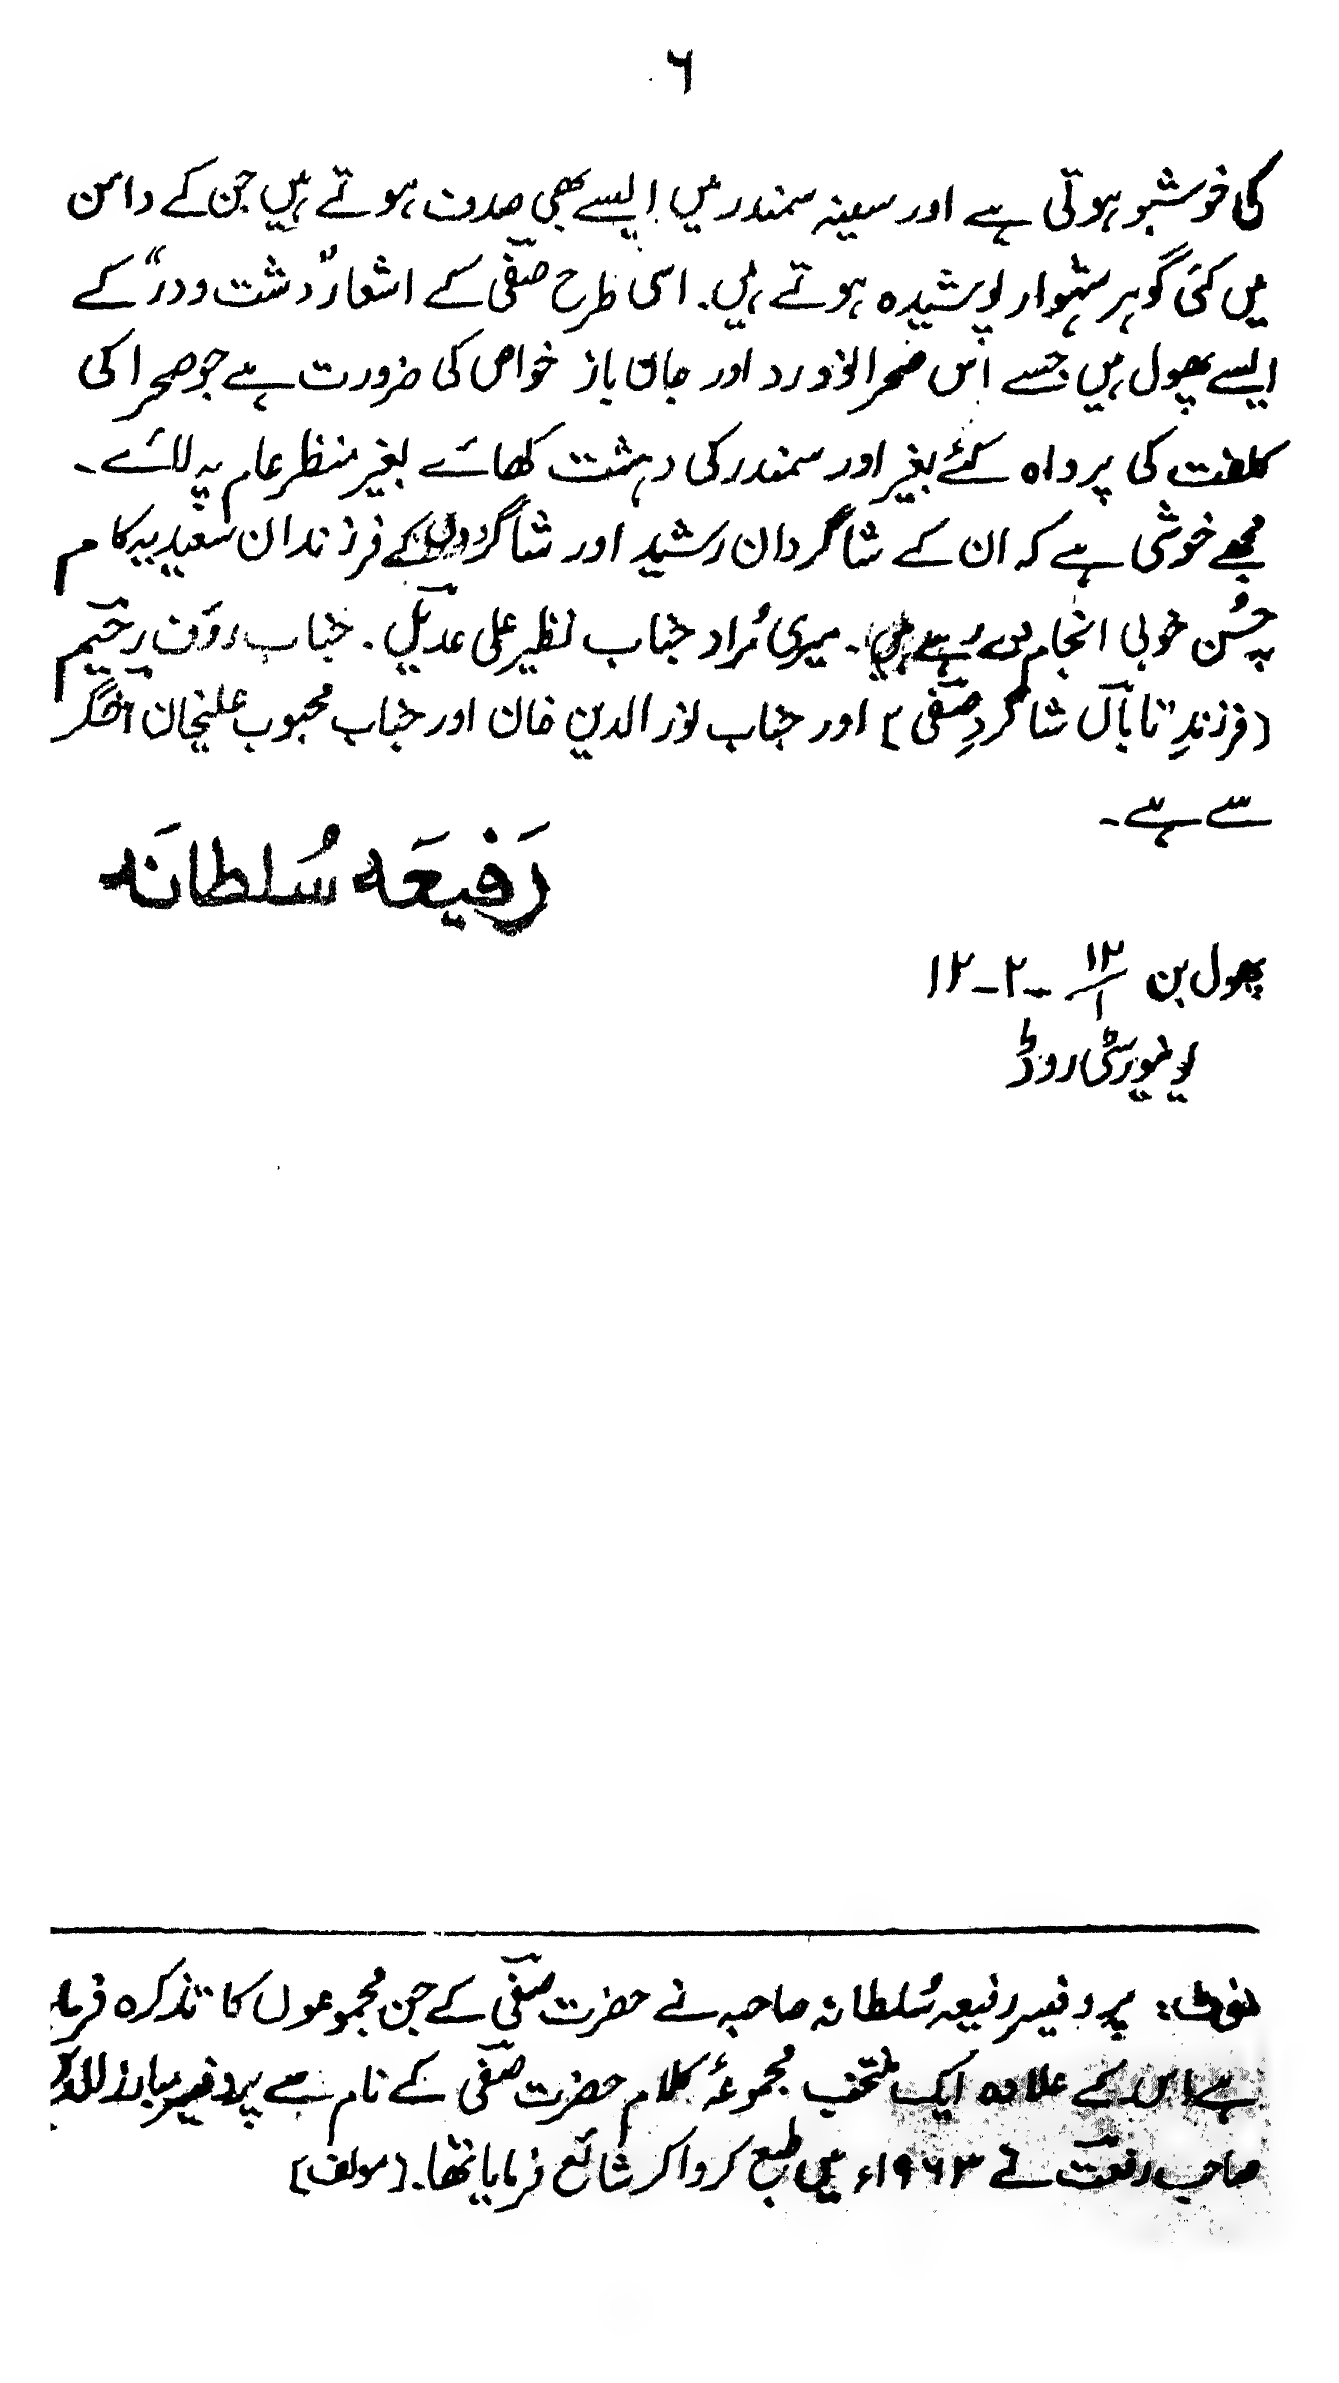 ۶
کی خوشبو ہوتی ہے اور سینہ سمندر میں ایسے بھی صدف ہوتے ہیں جن کے دامن
میں کئی گوہر شہوار پوشیدہ ہوتے ہیں۔ اسی طرح صفیؔ کے اشعار "دشت و در" کے
ایسے پھول ہیں جسے اُس صحرا نورد اور جان باز خواص کی ضرورت ہے جو صحرا کی
کلفت کی پرواہ کئے بغیر اور سمندر کی دہشت کھائے بغیر منظر عام پہ لائے۔
مجھے خوشی ہے کہ ان کے شاگردان رشید اور شاگردوں کے فرزندان سعید یہ کام
بہ حُسن خوبی انجام دے رہے ہیں۔ میری مُراد جناب نظیر علی عدیلؔ۔ جناب رؤف رحیمؔ
(فرزندِ تاباںؔ شاگردِ صفیؔ) اور جناب نور الدین خان اور جناب محبوب علیخان اخگرؔ
سے ہے۔
رَفیعَہ سُلطانَہ
پھول بن ۱۲/۱ -۲-۱۲
یونیورسٹی روڈ
نوٹ: پروفیسر رفیعہ سُلطانہ صاحبہ نے حضرت صفیؔ کے جن مجموعوں کا تذکرہ فرمایا
ہے اس کے علاوہ ایک منتخب مجموعۂ کلام حضرت صفیؔ کے نام سے پروفیسر مبارز الدین
صاحب رفعتؔ نے ۱۹۶۳ء میں طبع کرواکر شائع فرمایا تھا۔ (مولف)